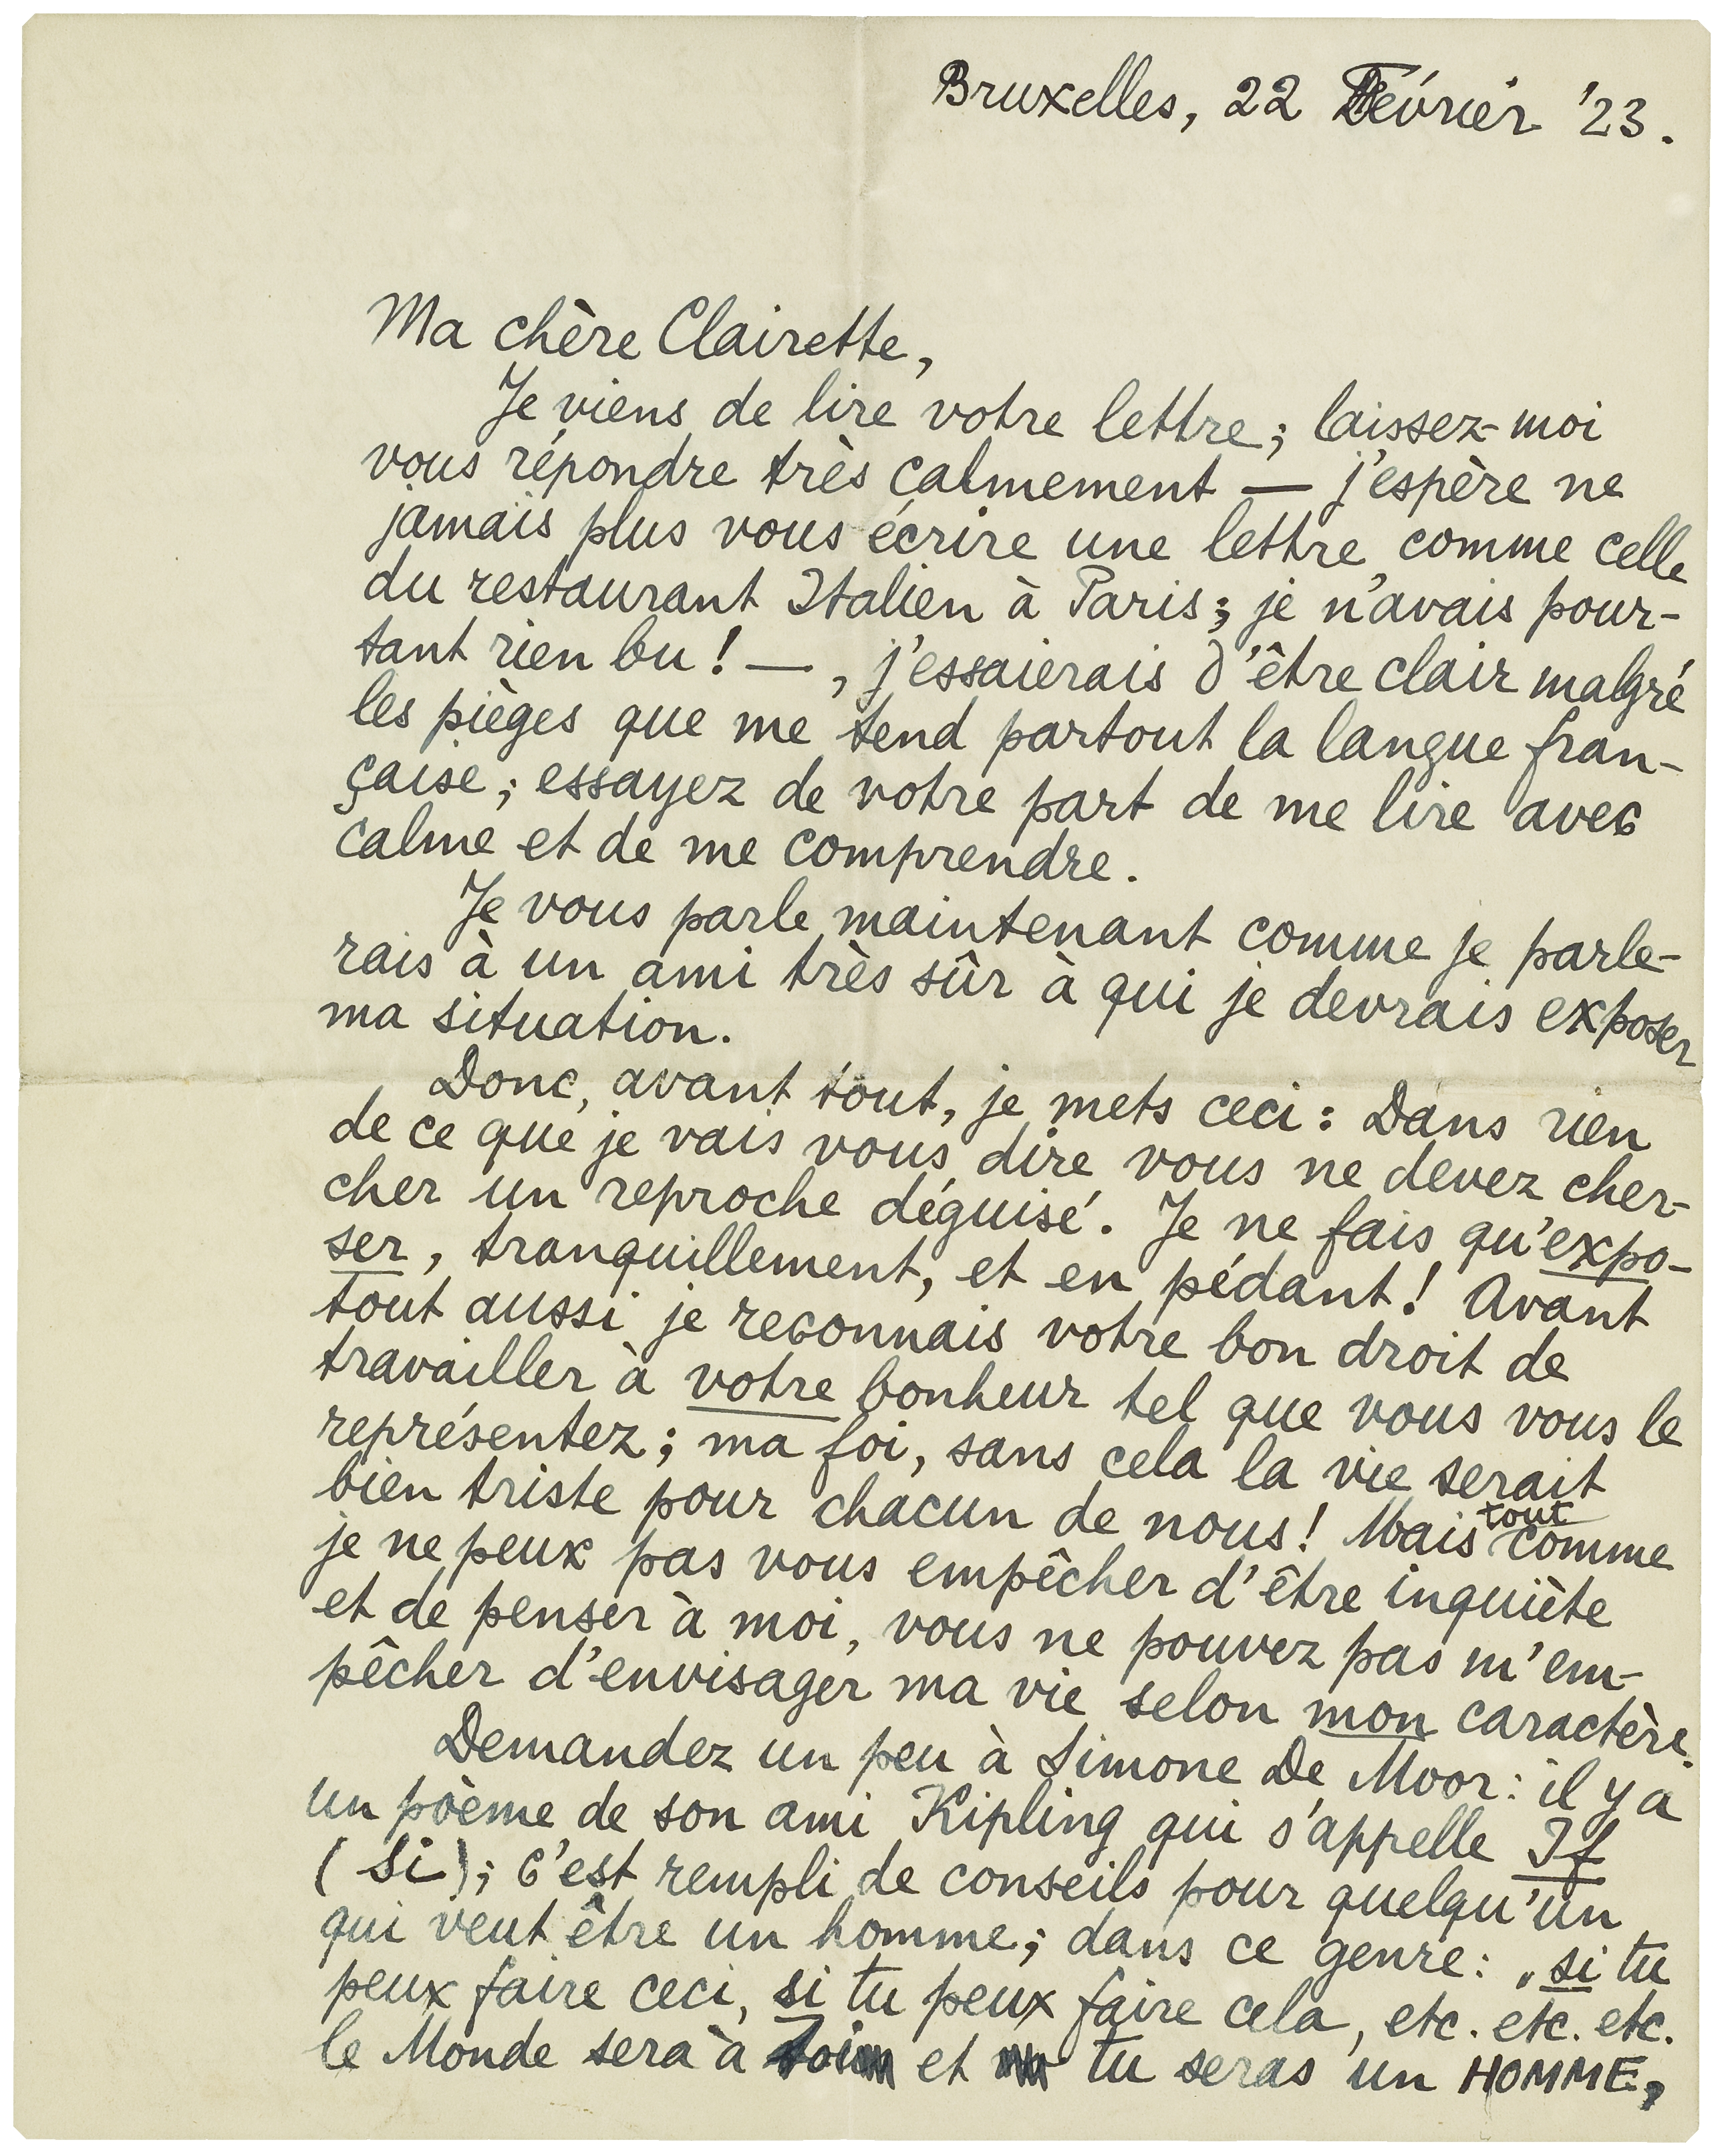 Bruxelles, 22 Février '23.
Ma chère Clairette,
Je viens de lire votre lettre; laissez-moi
vous répondre très calmement — j'espère ne
jamais plus vous écrire une lettre comme celle
du restaurant Italien à Paris; je n'avais pour-
tant rien bu! —, j'essaierais d'être clair malgré
les pièges que me tend partout la langue fran-
çaise; essayez de votre part de me lire avec
calme et de me comprendre.
Je vous parle maintenant comme je parle-
rais à un ami très sûr à qui je devrais exposer
ma situation.
Donc, avant tout, je mets ceci: Dans rien
de ce que je vais vous dire vous ne devez cher-
cher un reproche déguisé. Je ne fais qu'expo-
ser, tranquillement, et en pédant! Avant
tout aussi je reconnais votre bon droit de
travailler à votre bonheur tel que vous vous le
représentez; ma foi, sans cela la vie serait
bien triste pour chacun de nous! Mais tout comme
je ne peux pas vous empêcher d'être inquiète
et de penser à moi, vous ne pouvez pas m'em-
pêcher d'envisager ma vie selon mon caractère.
Demandez un peu à Simone De Moor: il y a
un poème de son ami Kipling qui s'appelle If
(Si); c'est rempli de conseils pour quelqu'un
qui veut être un homme; dans ce genre: „si tu
peux faire ceci, si tu peux faire cela, etc. etc. etc.
le Monde sera à toi et tu seras un HOMME,